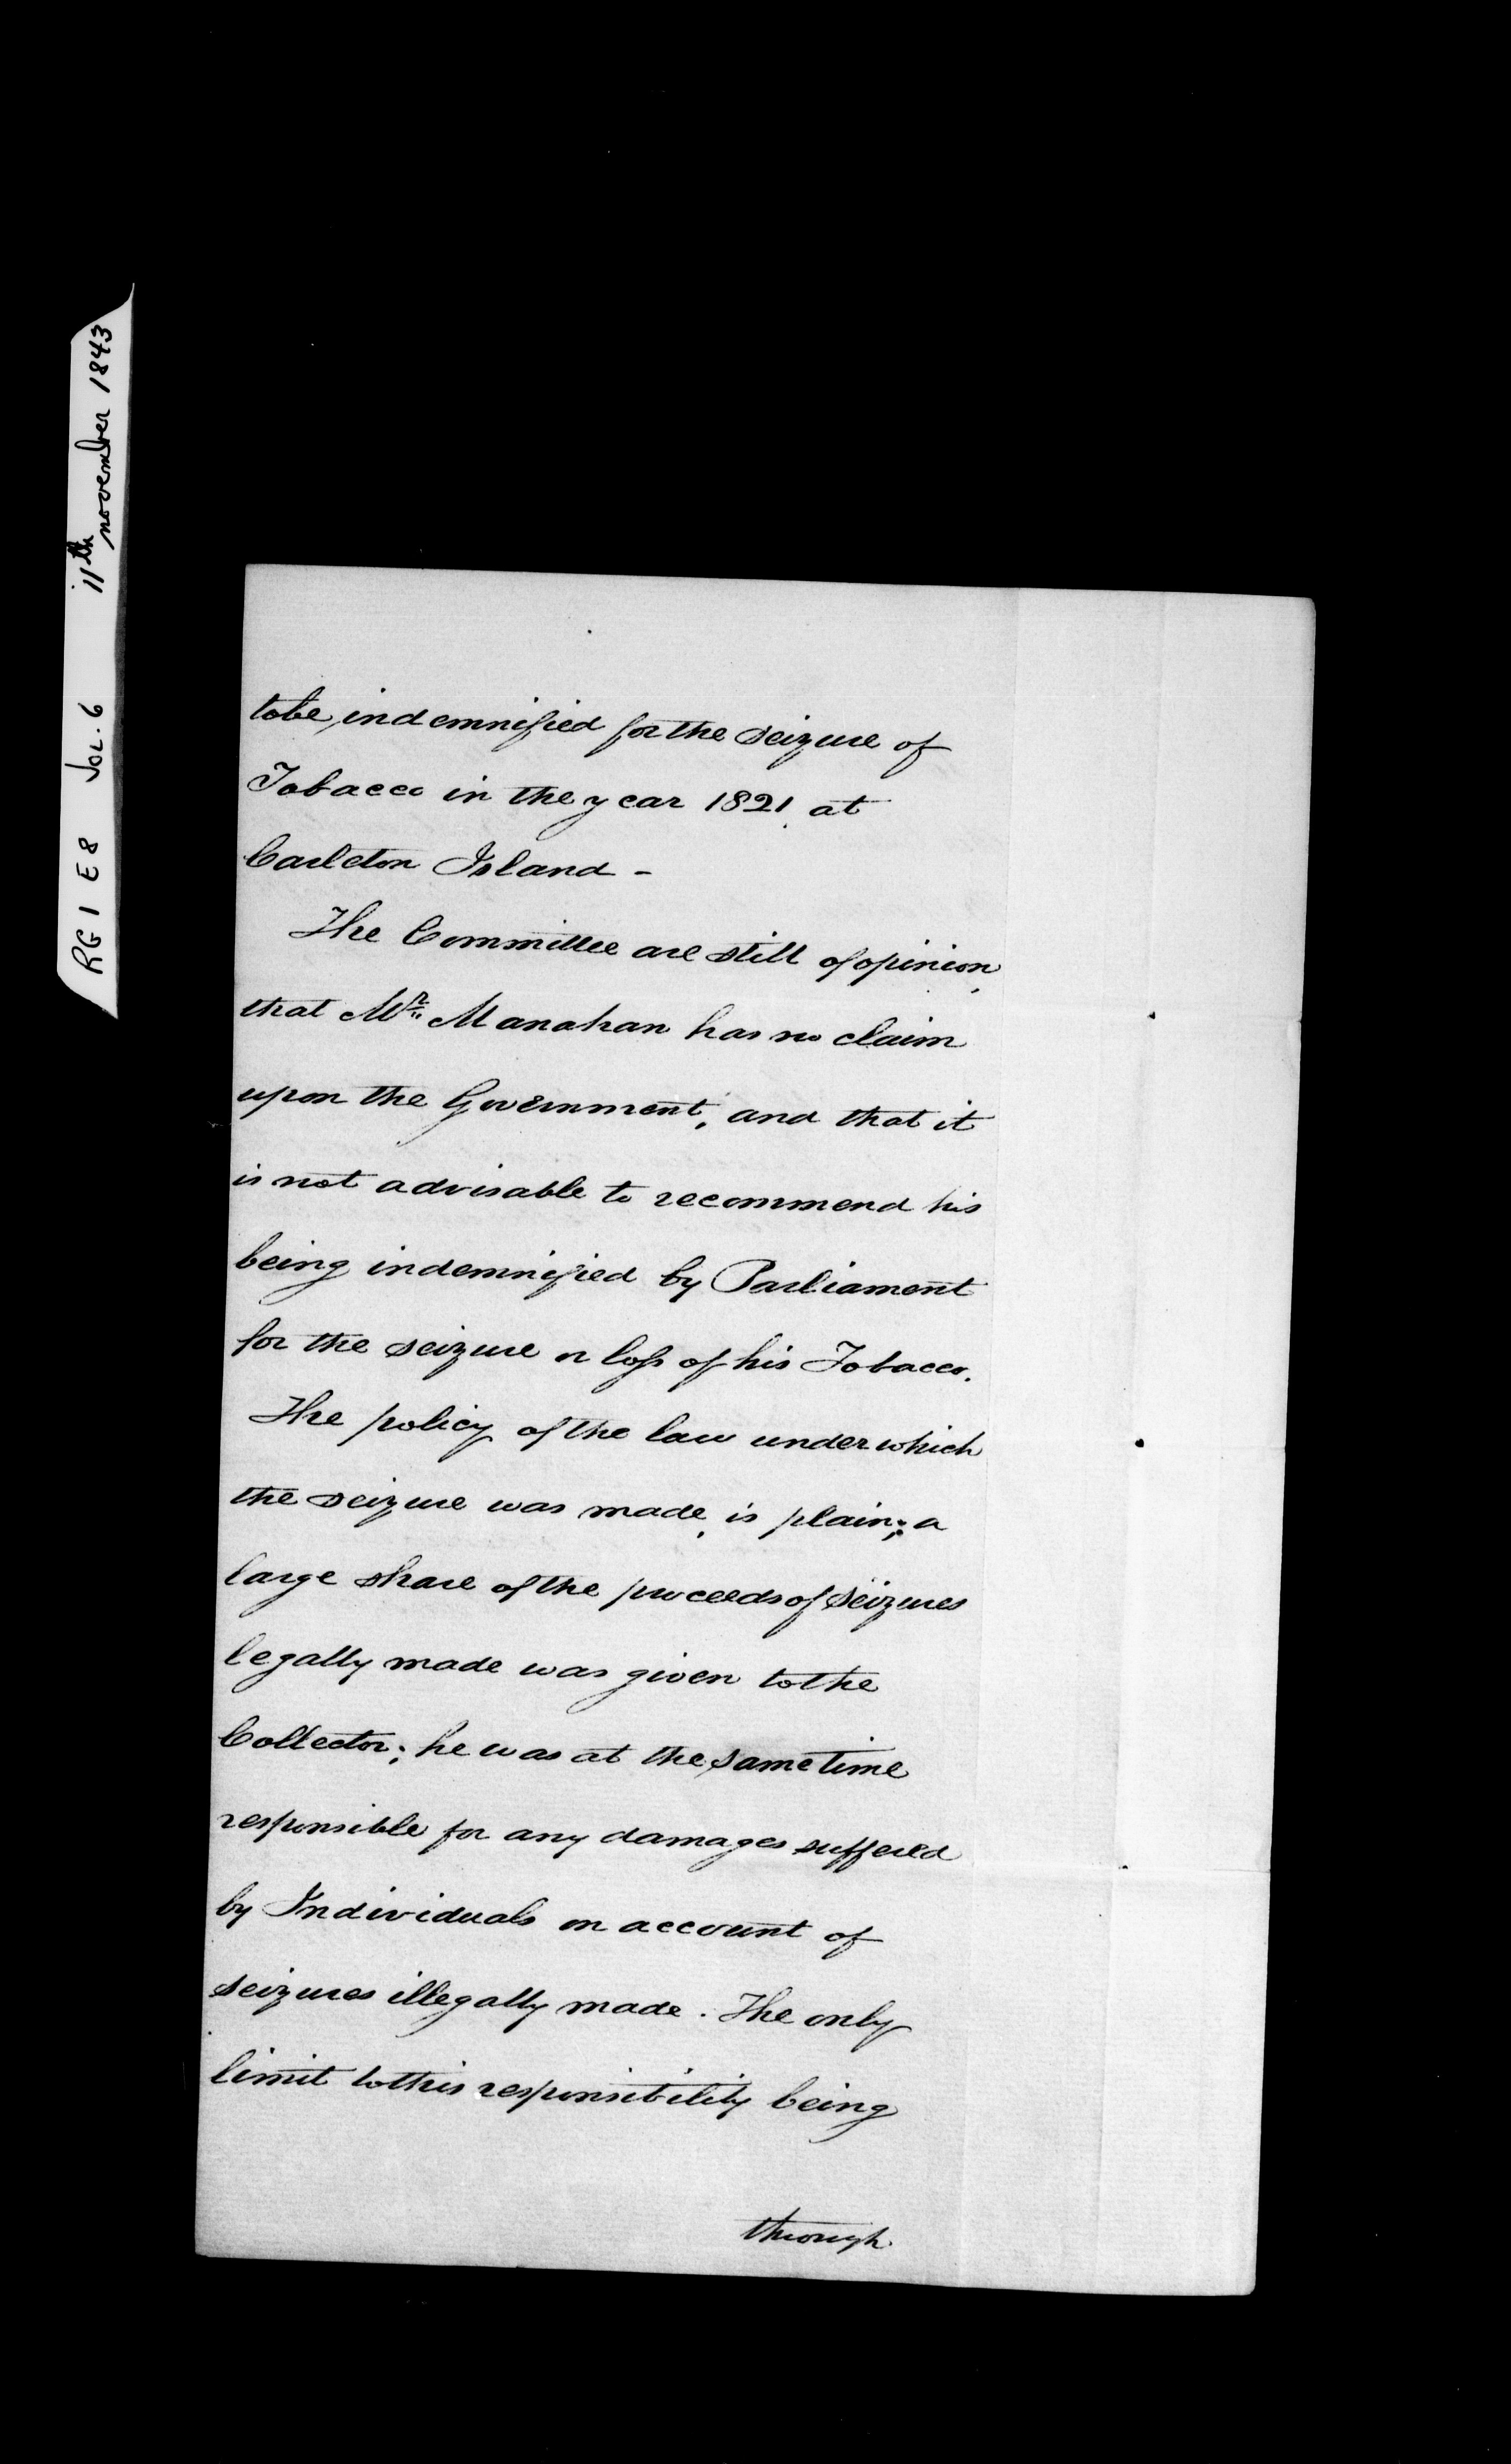 RG 1 E 8 Vol. 6 11th november 1843
to be indemnified for the seizure of
Tobacco in the year 1821, at
Carleton Island -
The Committee are still of opinion,
that Mr. Manahan has no claim
upon the Government, and that it
is not advisable to recommend his
being indemnified by Parliament
for the seizure or loss of his Tobacco.
The policy of the law under which
the seizure was made, is plain; a
large share of the proceeds of Seizures
legally made was given to the
Collector; he was at the same time
responsible for any damages suffered
by Individuals on account of
seizures illegally made. The only
limit to this responsibility being
through